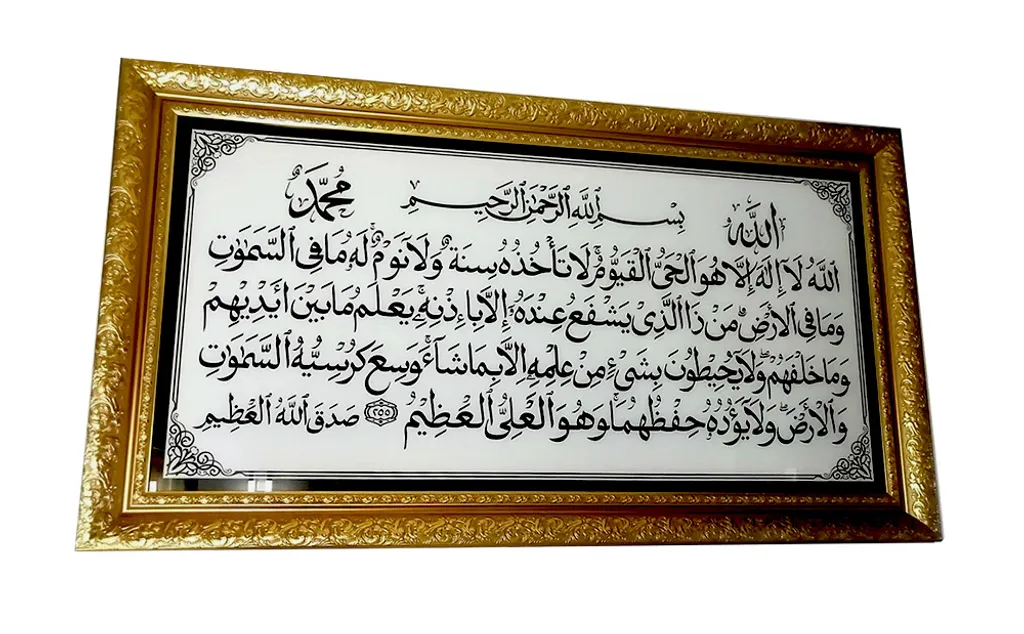 الله
بِسْمِ ٱللَّهِ ٱلرَّحْمَٰنِ ٱلرَّحِيمِ
مُحَمَّد
اَللّٰهُ لَا اِلٰهَ اِلَّا هُوَ اَلْحَىُّ الْقَيُّومُ ۚ لَا تَأْخُذُهُ سِنَةٌ وَلَا نَوْمٌ ۚ لَهُ مَا فِى السَّمٰوَاتِ
وَمَا فِى الْاَرْضِ ۗ مَنْ ذَا الَّذِى يَشْفَعُ عِنْدَهُ اِلَّا بِاِذْنِهِ ۚ يَعْلَمُ مَا بَيْنَ اَيْدِيهِمْ
وَمَا خَلْفَهُمْ ۖ وَلَا يُحِيطُونَ بِشَىْءٍ مِنْ عِلْمِهِ اِلَّا بِمَا شَاءَ ۚ وَسِعَ كُرْسِيُّهُ السَّمٰوَاتِ
وَالْاَرْضَ ۖ وَلَا يَؤُدُهُ حِفْظُهُمَا ۚ وَهُوَ الْعَلِىُّ الْعَظِيمُ ﴿٢٥٥﴾ صَدَقَ اللّٰهُ الْعَظِيمِ